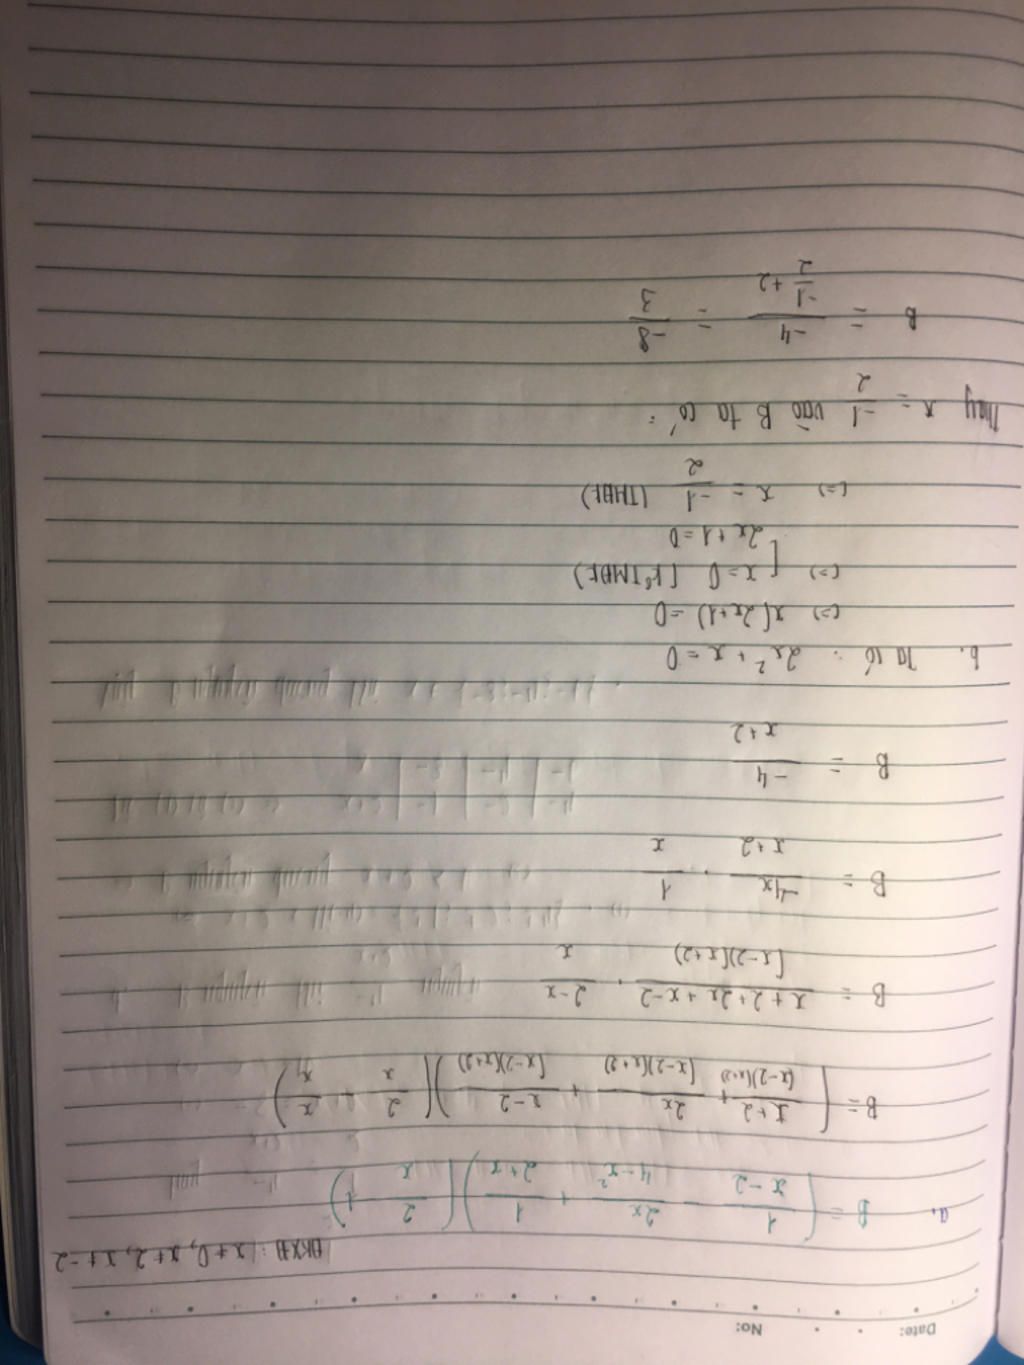 Date: No:
ĐKXĐ: x ≠ 0, x ≠ 2, x ≠ -2
a. B = (1/(x-2) - 2x/(4-x²) + 1/(2+x))(2/x - 1)
B = ((x+2)/((x-2)(x+2)) + 2x/((x-2)(x+2)) + (x-2)/((x-2)(x+2)))(2/x - x/x)
B = (x+2+2x+x-2)/((x-2)(x+2)) . (2-x)/x
B = -4x/(x+2) . 1/x
B = -4/(x+2)
b. Ta có: 2x² + x = 0
(=) x(2x+1) = 0
(=) [ x=0 (k°TMĐK)
2x+1=0
(=) x = -1/2 (TMĐK)
Thay x = -1/2 vào B ta có:
B = -4/(-1/2 + 2) = -8/3